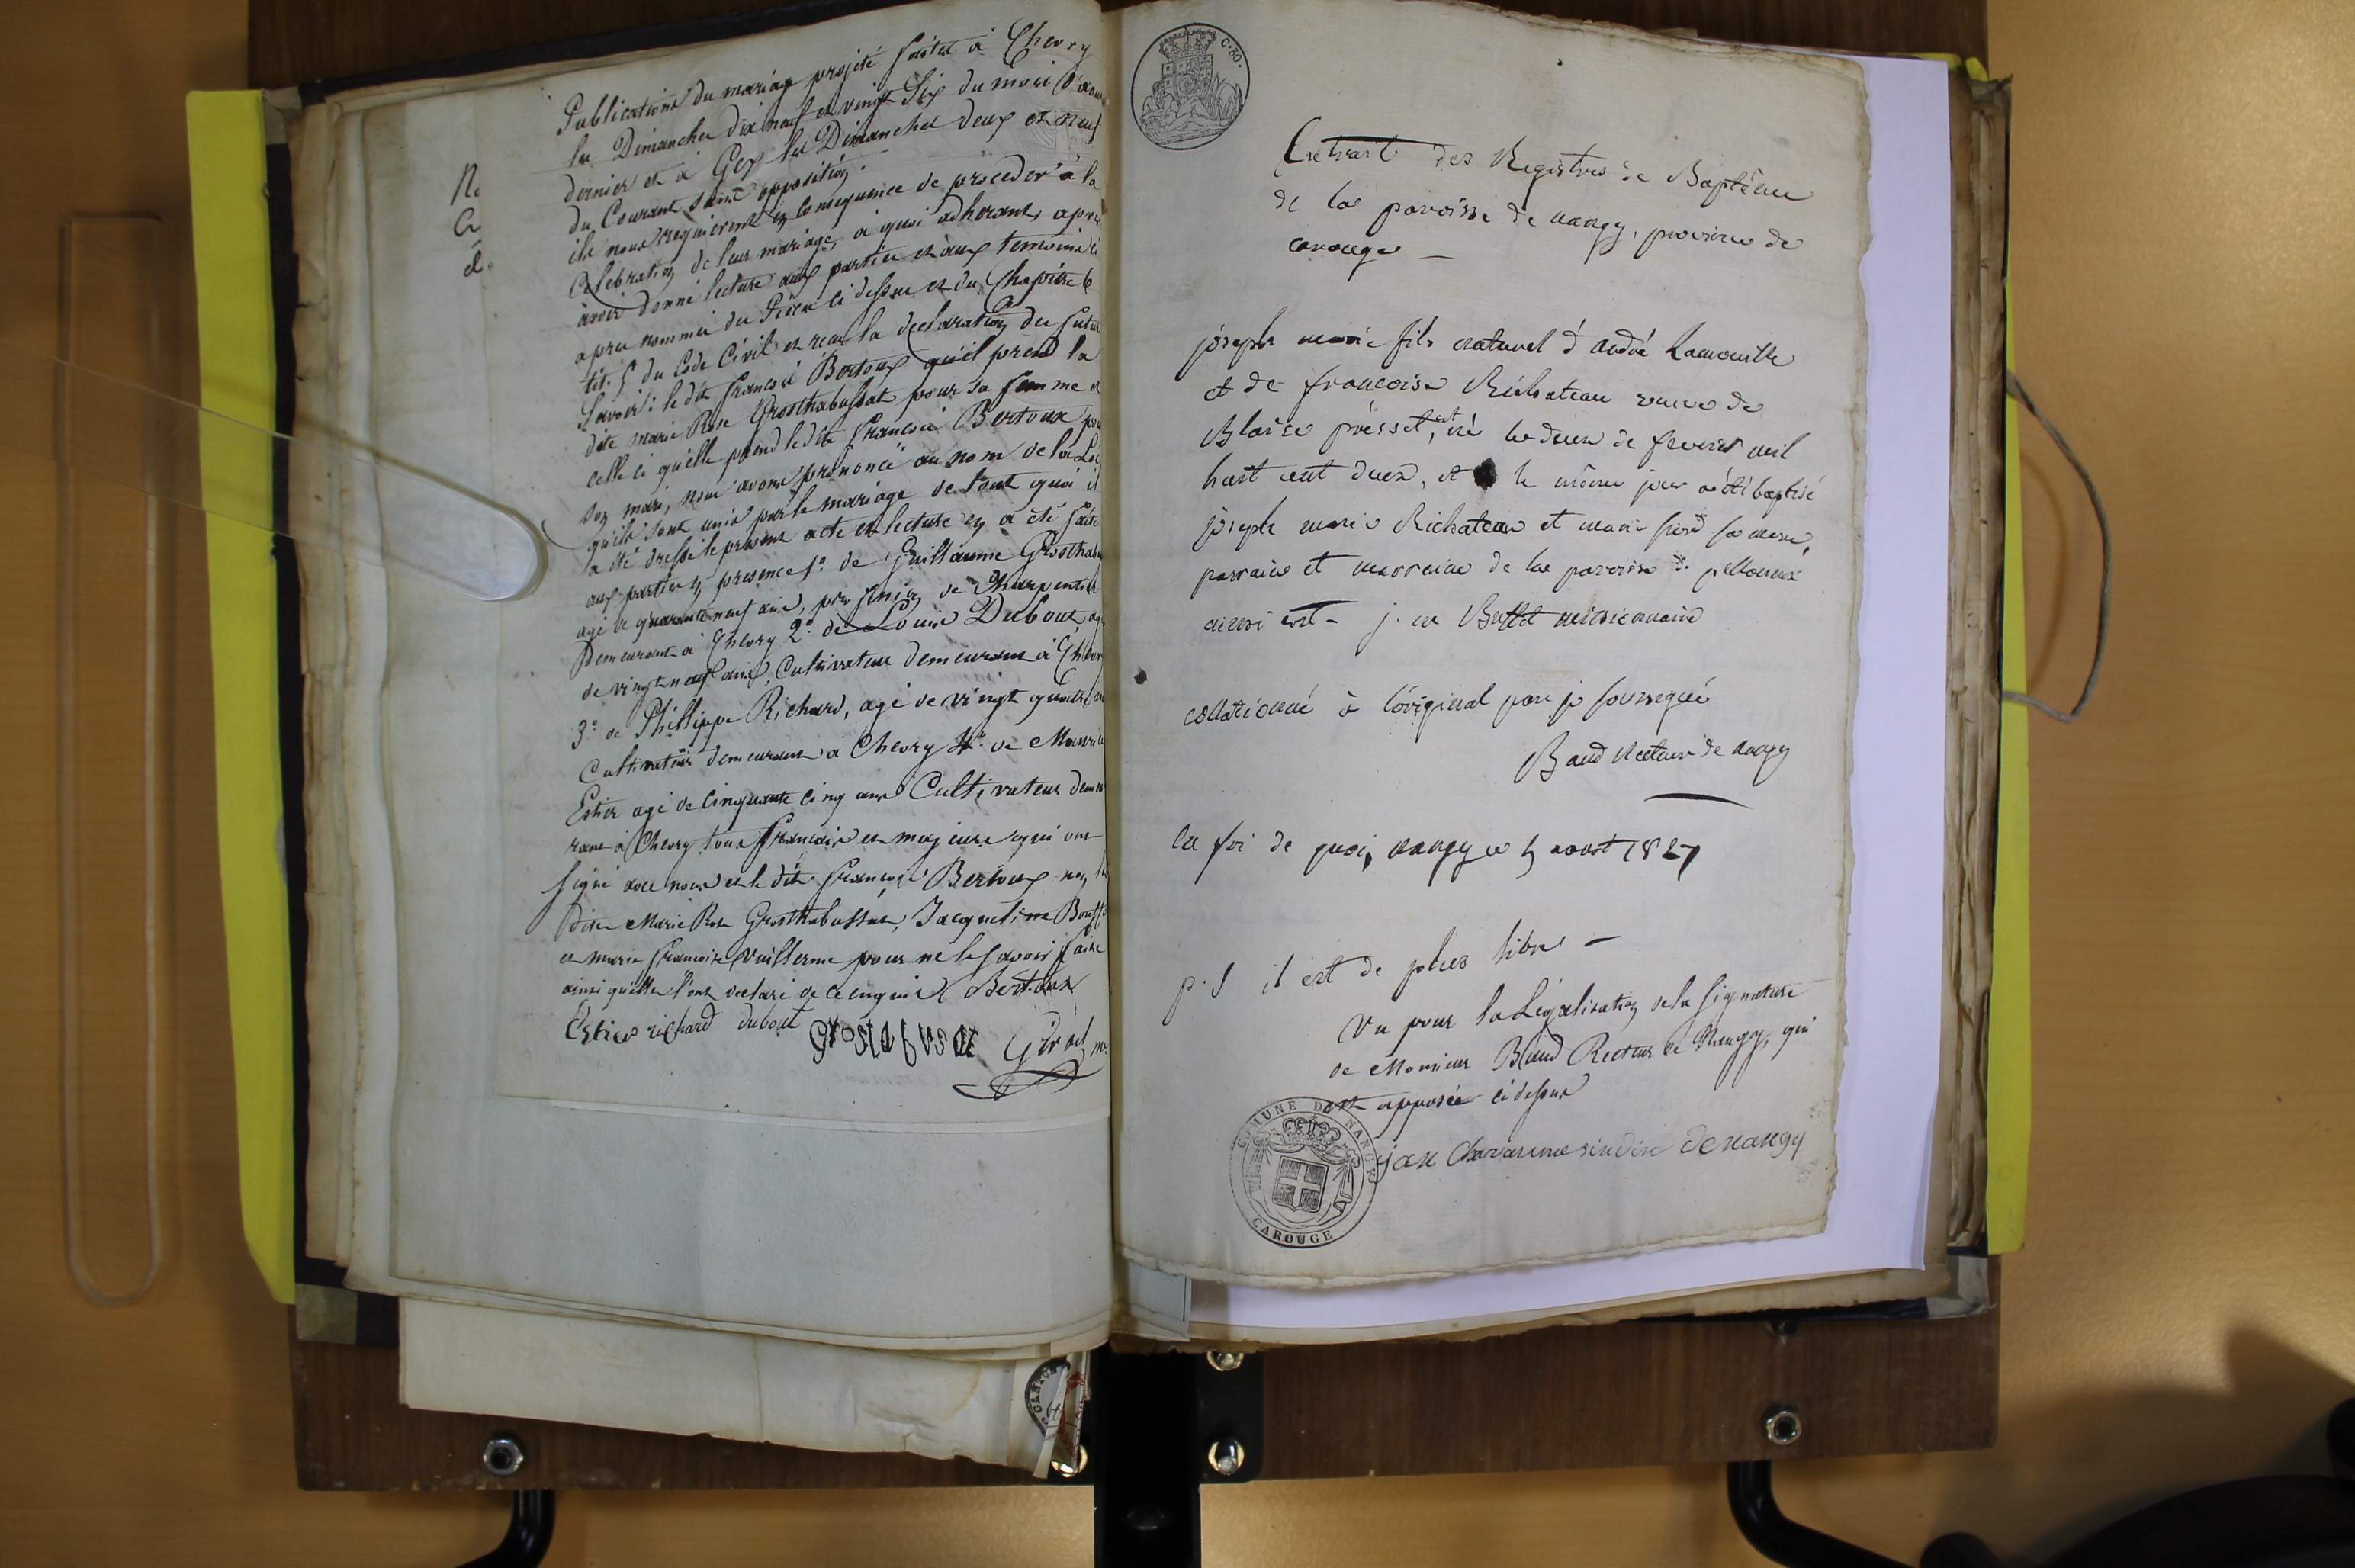 Publications du mariage projeté faites à Chevry
les Dimanches dix neuf et vingt Six du mois d'aou
dernier et à Gex les Dimanches deux et neuf
du Courant sans opposition
ils nous requierent en consequence de proceder à la
Celebration de leur mariage, à quoi adherant, apres
avoir donné lecture aux parties et aux temoins ci
apres nommés des Pieces ci dessus et du Chapitre 6
tit. 5 du Code Civil et recu la declaration des futurs
Savoir: le dit francois Bertoux qu'il prend la
dite marie Rose Grosthabussat pour sa femme et
celle ci qu'elle prend le dit francois Bertoux pour
son mari, nous avons prononcé au nom de la Loi
qu'ils sont unis par le mariage de tout quoi il
a été dressé le present acte et lecture en a été faite
aux parties en presence 1.º de Guillaume Grosthabu
agé de quarante neuf ans, de Charpentier
Demeurant à Chevry 2.º de Louis Dubout ag
de vingt neuf ans, Cultivateur demeurant à Chevry
3.º de Philippe Richard, agé de vingt quatre an
Cultivateur demeurant à Chevry 4.º de Maurice
Estier agé de Cinquante Cinq ans Cultivateur demeu
rant à Chevry tous francais et majeurs qui ont
signé avec nous et le dit francois Bertoux non
dite Marie Rose Grosthabussat, Jacqueline
et marie francoise Vuillerme pour ne le savoir faire
ainsi qu'elles l'ont declaré de ce enquis Bertoux
Estier richard dubout Grostabusat Girod m.
N.
C
d
C. 80.
Extrait des Registres de Baptême
de la paroisse de nangy, province de
carouge —
joseph marie fils naturel d'André Lamouille
et de francoise Richateau veuve de
Blaise présset, est né le deux de fevrier mil
huit cent deux, et le même jour a été baptisé
joseph marie Richateau et marie sa mere,
parrain et marraine de la paroisse de pellonnex
ainsi est - j. m Buttet missionnaire
collationné à l'original par je soussigné
Baud Recteur de nangy
en foi de quoi, nangy ce 5 aoust 1827
p. S il est de plus libre —
Vu pour la Légalisation de la signature
de Monsieur Baud Recteur de Nangy, qui
est apposée ci dessus
jan Chavanne sindic de nangy
COMUNE DE NANGY
CAROUGE